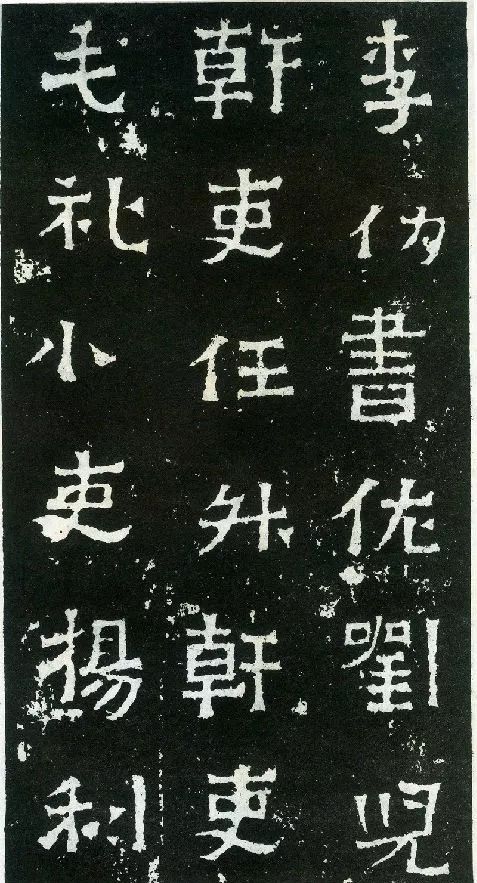 李仂書佐劉兒
幹吏任升幹吏
毛礼小吏楊利